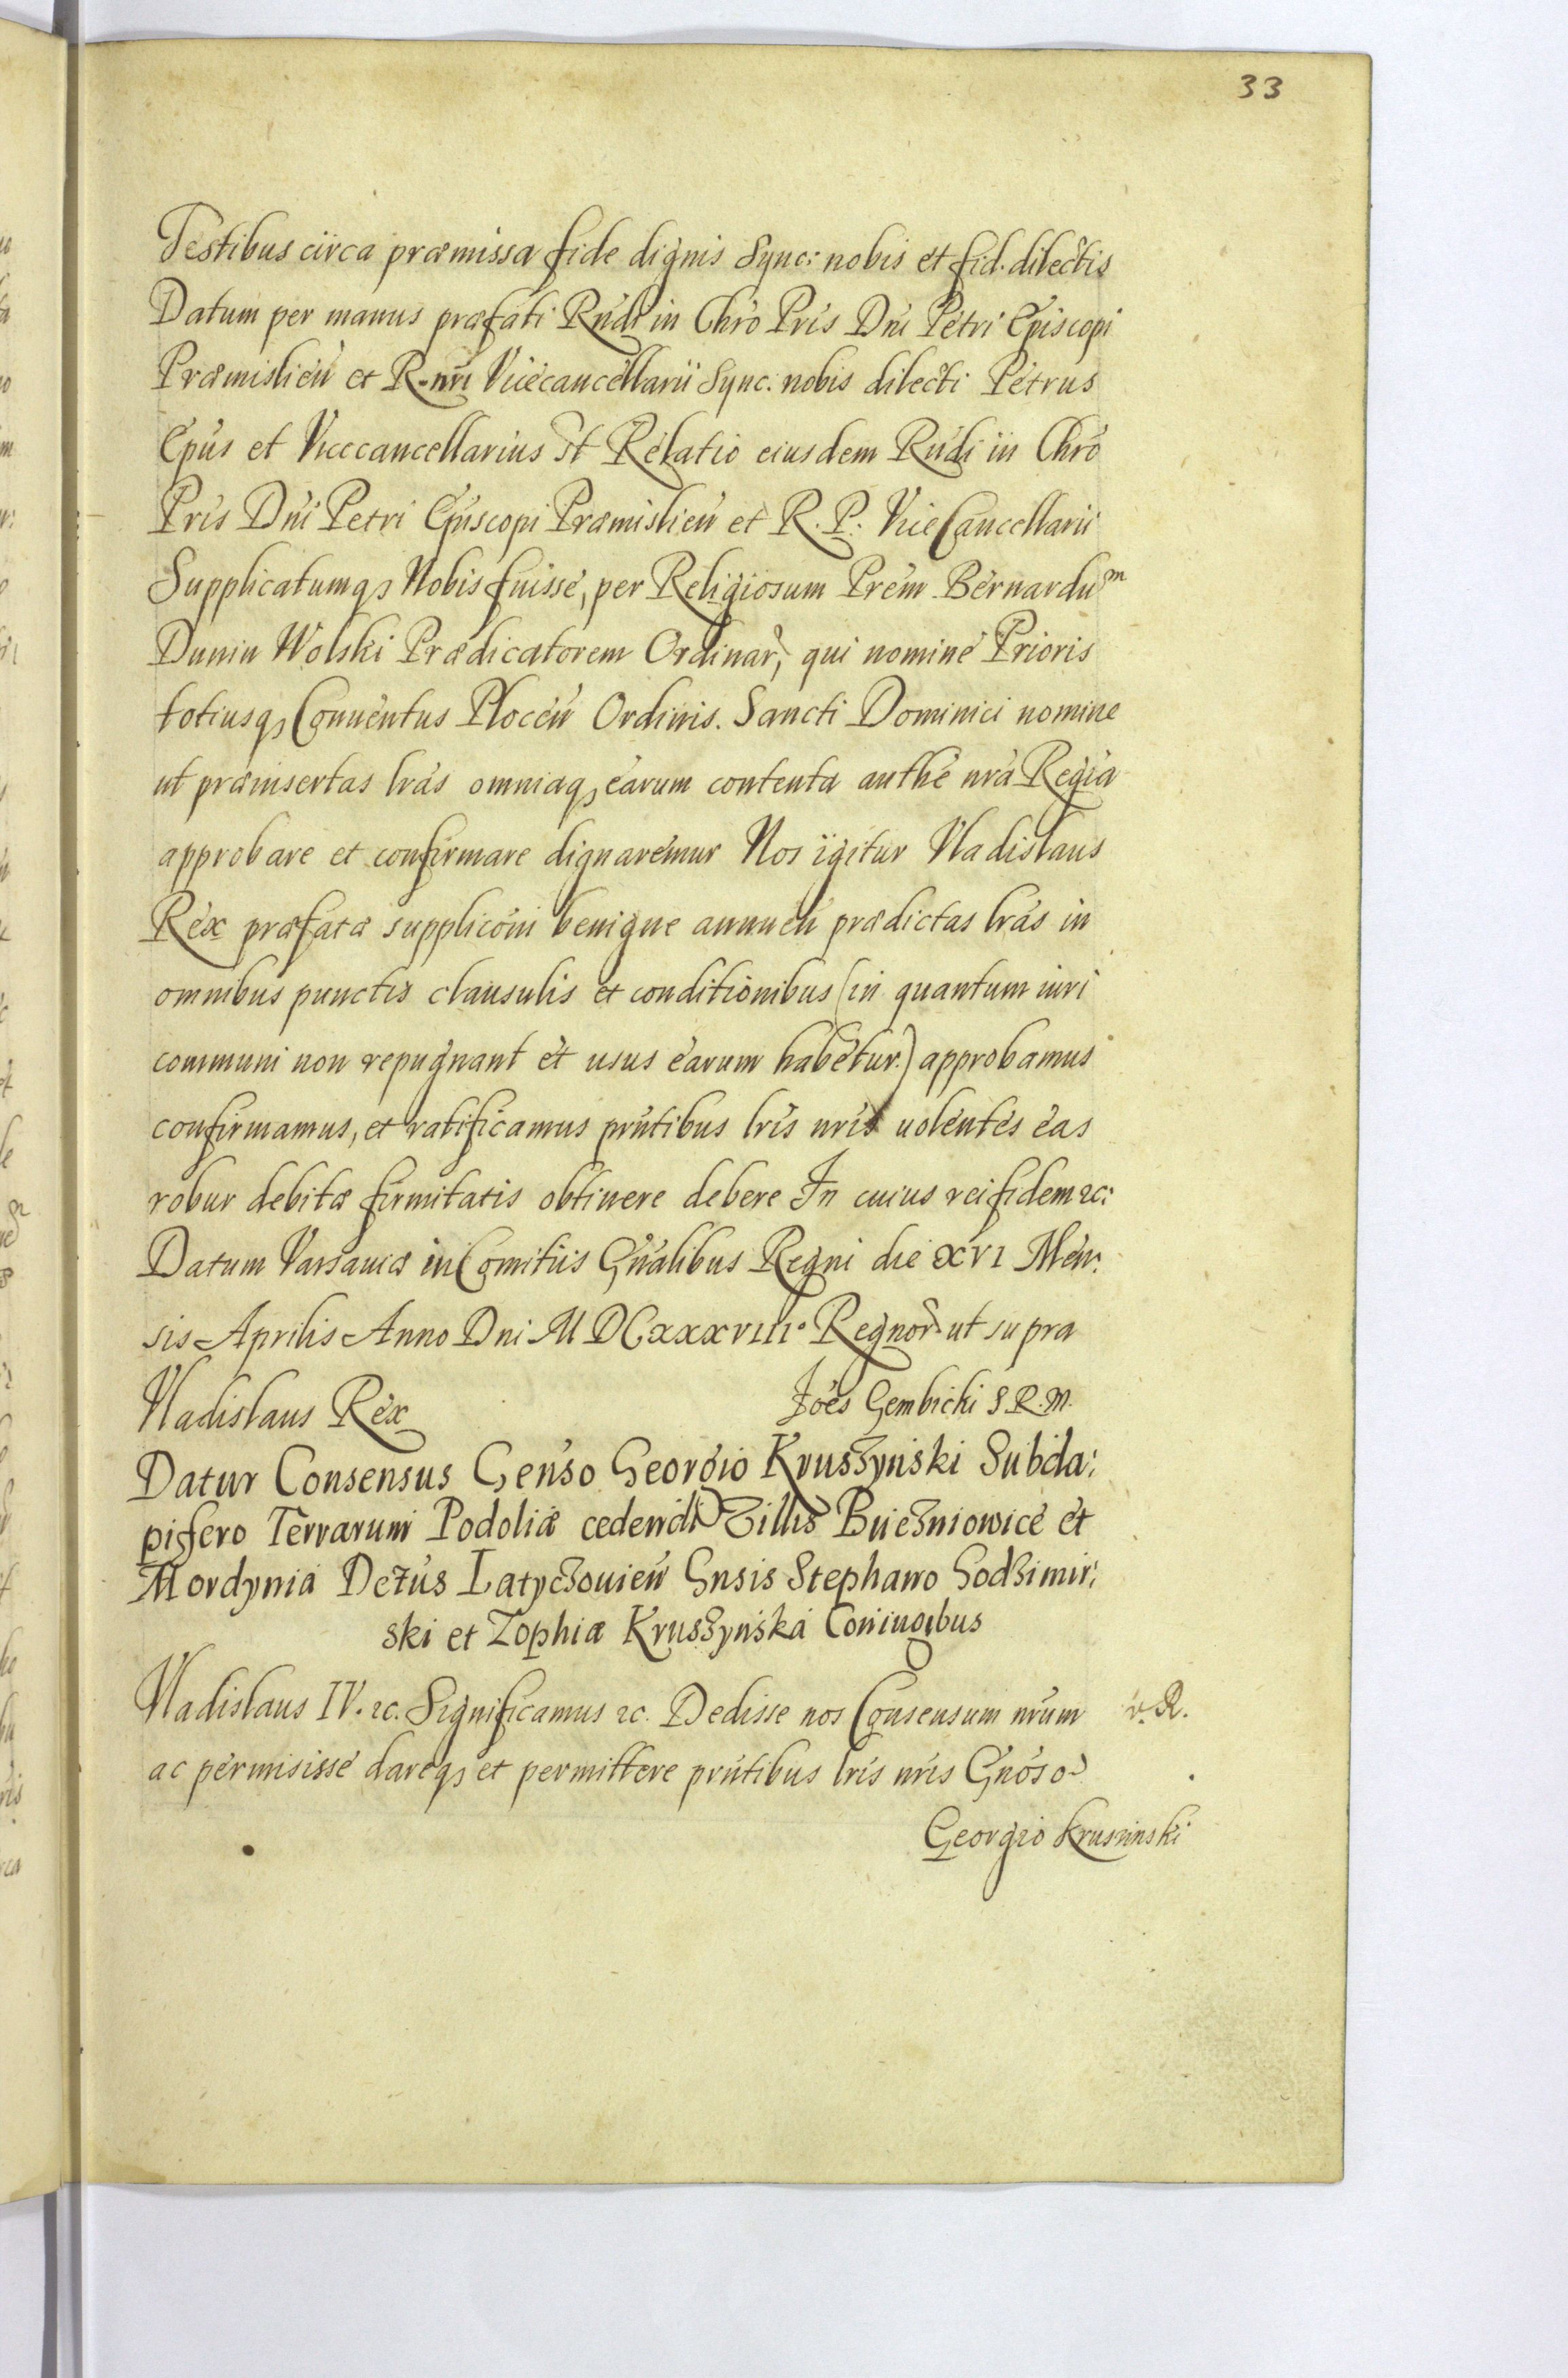 33
Testibus circa præmissa fide dignis Sync: nobis et fid. dilectis
Datum per manus præfati Rndi in Chro Pris Dni Petri Episcopi
Præmislien et R. nri Vicecancellarii Sync. nobis dilecti Petrus
Epus et Vicecancellarius st Relatio eiusdem Rndi in Chro
Pris Dni Petri Episcopi Præmislien et R. P. Vice Cancellarii
Supplicatumqz Nobis fuisse, per Religiosum Prem Bernardum
Dunin Wolski Prædicatorem Ordinar, qui nomine Prioris
totiusqz Conuentus Plocen Ordinis. Sancti Dominici nomine
ut præinsertas lras omniaqz earum contenta authe nra Regia
approbare et confirmare dignaremur Nos igitur Vladislaus
Rex præfatæ supplicôni benigne annuen prædictas lras in
omnibus punctis clausulis et conditionibus (in quantum iuri
communi non repugnant et usus earum habetur.) approbamus
confirmamus, et ratificamus pntibus lris nris uolentes eas
robur debitæ firmitatis obtinere debere In cuius rei fidem zc:
Datum Varsauiæ in Comitiis Gnalibus Regni die XVI Men:
sis Aprilis Anno Dni MDCxxxviii. Regnor ut supra
Vladislaus Rex Joes Gembicki S R. M.
Datur Consensus Genso Georgio Kruszynski Subda:
pifero Terrarum Podoliæ cedendi Villis Buiezniowice et
Mordynia Dctus Latyczouien Gnsis Stephano Godzimir:
ski et Zophiæ Kruszynska Coniugibus
Vladislaus IV. zc. Significamus zc. Dedisse nos Consensum nrum v. R.
ac permisisse dareqz et permittere pntibus lris nris Gnoso
Georgio Kruszinski